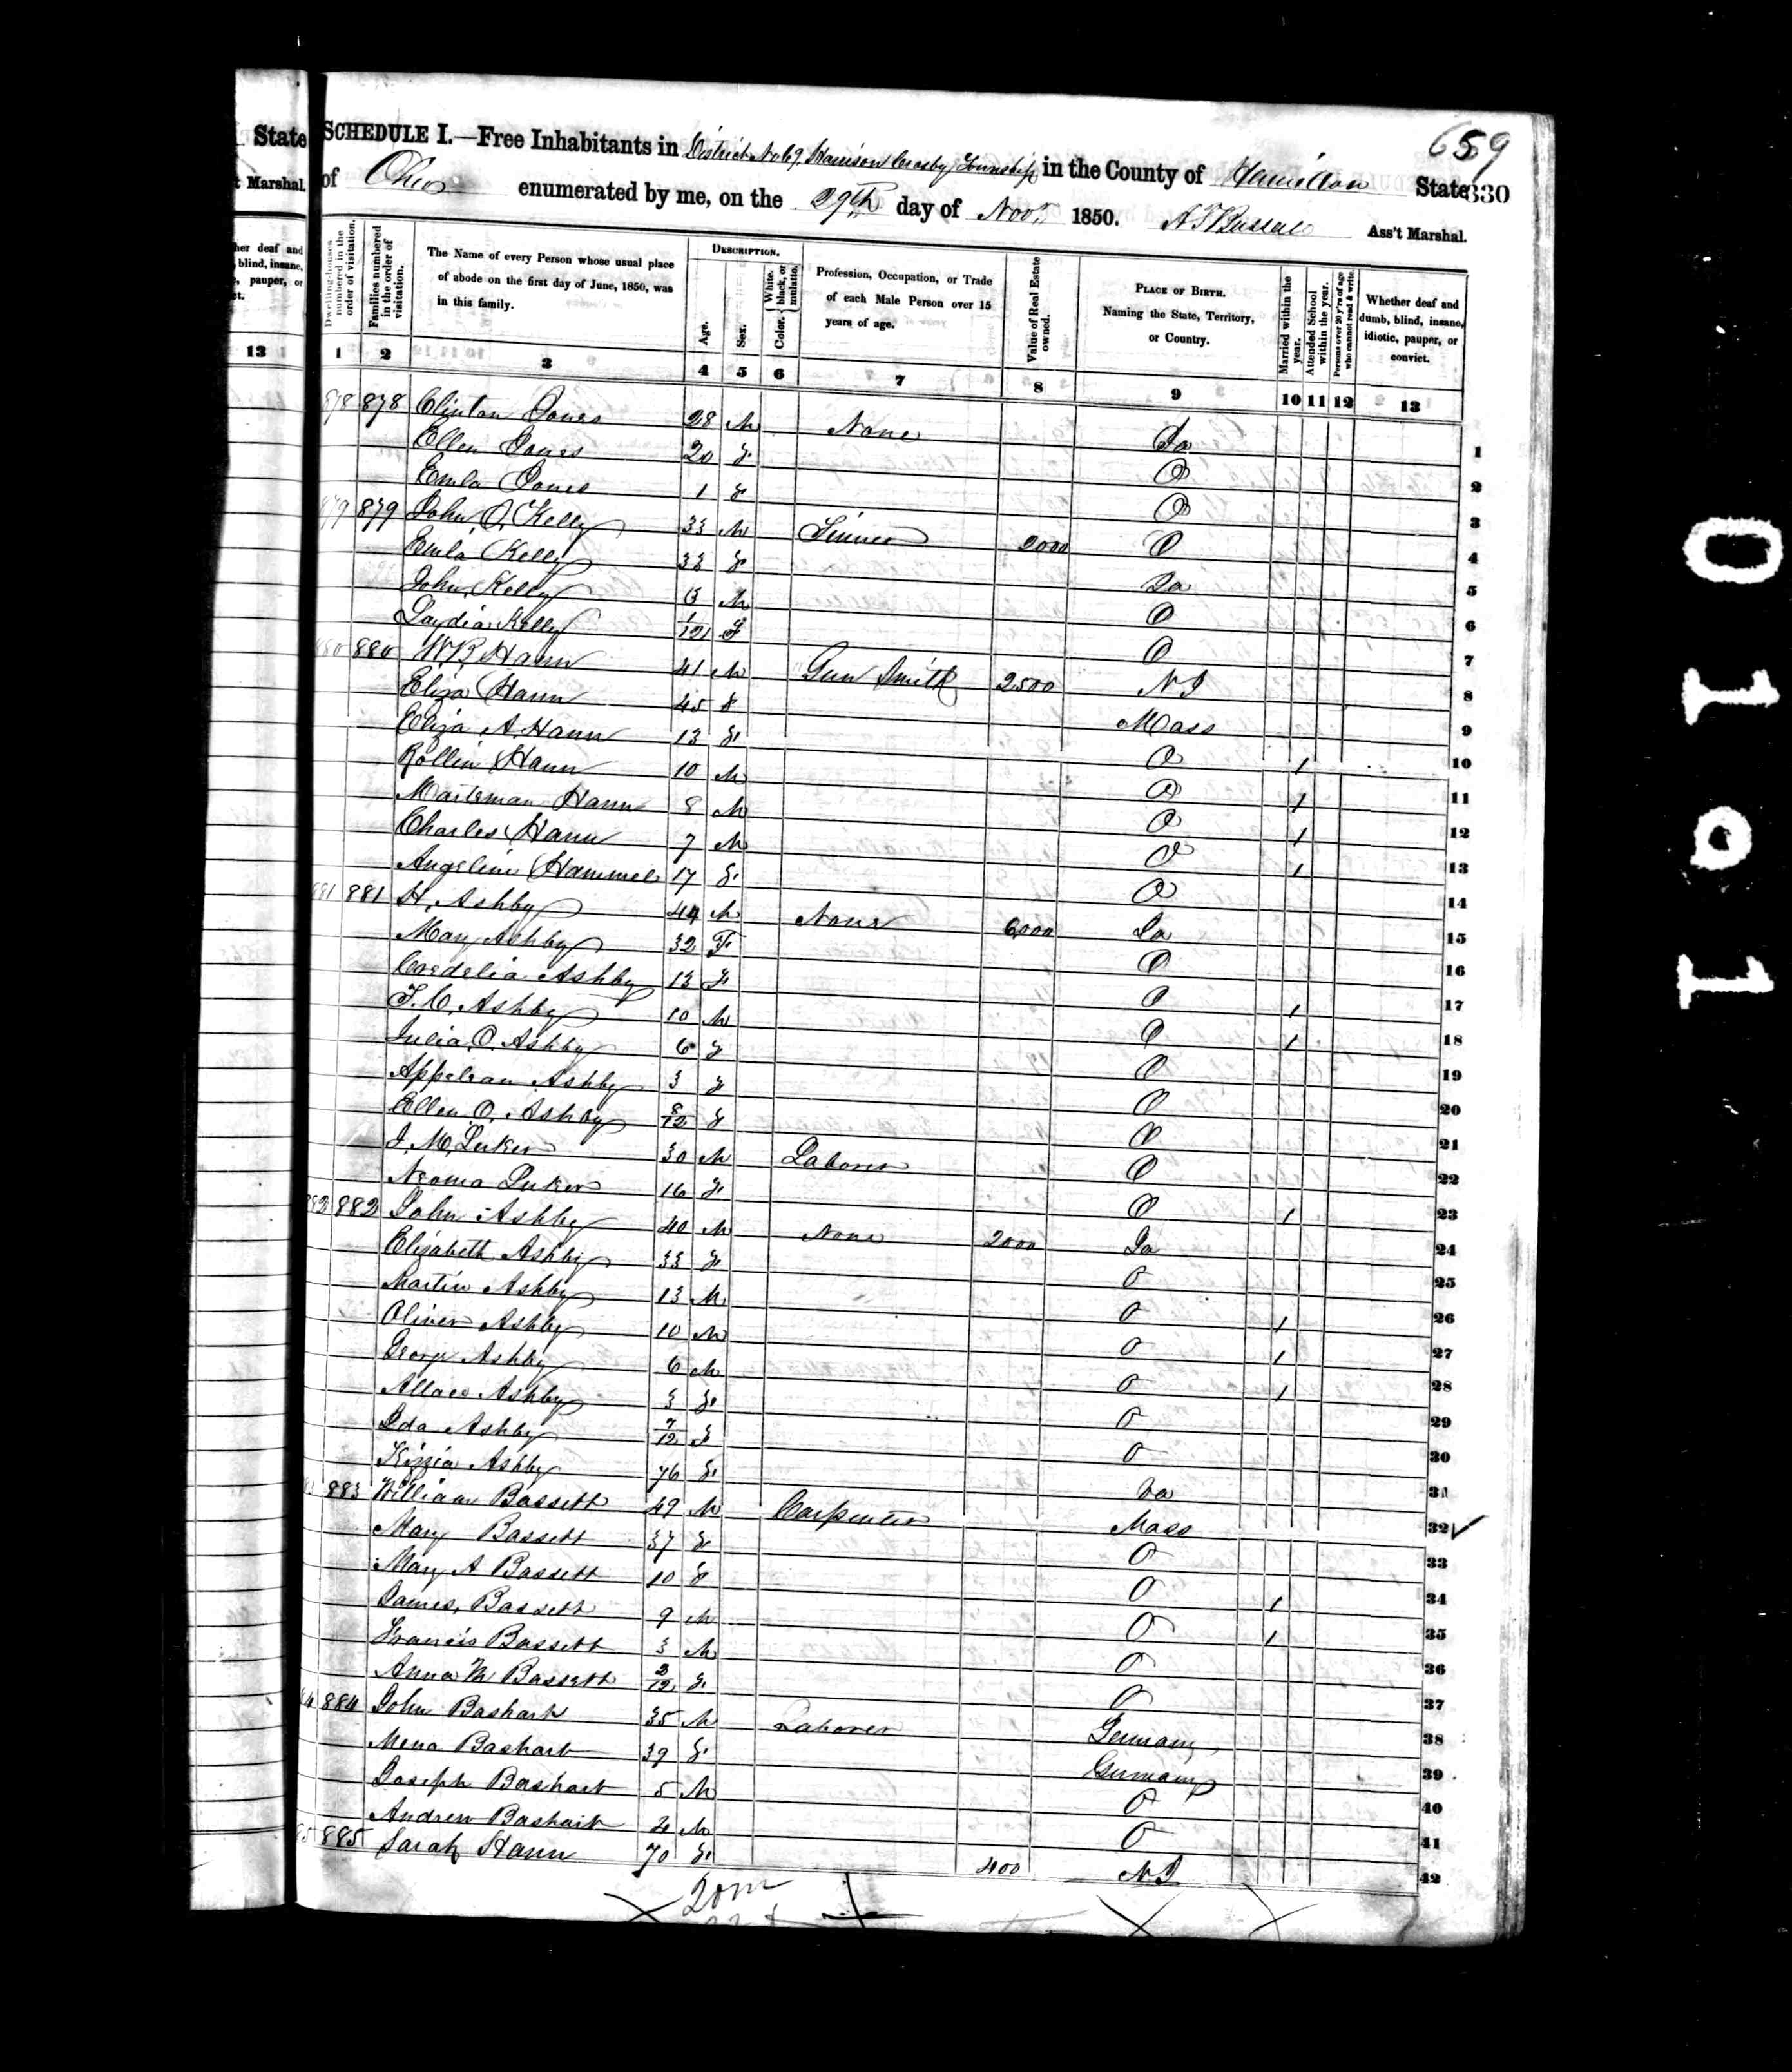 659
State
SCHEDULE I.—Free Inhabitants in District No 69, Harrison Crosby Township in the County of Hamilton State
330
t Marshal.
of Ohio enumerated by me, on the 29th day of Novr. 1850. Ass't Marshal.
her deaf and
, blind, insane,
, pauper, or
ct.
Dwelling-houses numbered in the order of visitation.
Families numbered in the order of visitation.
The Name of every Person whose usual place of abode on the first day of June, 1850, was in this family.
DESCRIPTION.
Age.
Sex.
Color. { White, black, or mulatto.
Profession, Occupation, or Trade of each Male Person over 15 years of age.
Value of Real Estate owned.
PLACE OF BIRTH. Naming the State, Territory, or Country.
Married within the year.
Attended School within the year.
Persons over 20 y'rs of age who cannot read & write.
Whether deaf and dumb, blind, insane, idiotic, pauper, or convict.
13 1 2 3 4 5 6 7 8 9 10 11 12 13
878 878 Clinton Jones 28 M None 1
Ellen Jones 20 F O 2
Jones 1 F O 3
879 879 John O. Kelly 33 M Tinner 2000 O 4
Kelly 33 F 5
John Kelly 3 M O 6
Laydia Kelly 1/12 F O 7
880 880 W. R. Hann 41 M Gun Smith 2500 N J 8
Eliza Hann 45 F Mass 9
Eliza A. Hann 13 F O 1 10
Rollin Hann 10 M O 1 11
Hann 8 M O 1 12
Charles Hann 7 M O 1 13
Angeline Hammel 17 F O 14
881 881 H. Ashby 44 M None 6000 15
Mary Ashby 32 F O 16
Cordelia Ashby 13 F O 1 17
T. C. Ashby 10 M O 1 18
Julia O. Ashby 6 F O 19
Ashby 3 F O 20
Ellen O. Ashby 8/12 F O 21
J. M. Luker 30 M Laborer O 22
Neoma Luker 16 F O 1 23
882 882 John Ashby 40 M None 2000 24
Elizabeth Ashby 33 F O 25
Martin Ashby 13 M O 1 26
Oliver Ashby 10 M O 1 27
George Ashby 6 M O 1 28
Ashby 3 F O 29
Ida Ashby 7/12 F O 30
Kizzia Ashby 76 F Va 31
883 William Bassett 49 M Carpenter Mass 32 ✓
Mary Bassett 37 F O 33
Mary A Bassett 10 F O 1 34
James Bassett 9 M O 1 35
Francis Bassett 3 M O 36
Anna M Bassett 2/12 F O 37
884 John Bashart 35 M Laborer Germany 38
Mena Bashart 39 F Germany 39
Joseph Bashart 5 M O 40
Andrew Bashart 4 M O 41
885 Sarah Hann 70 F 400 N J 42
20 m
0101